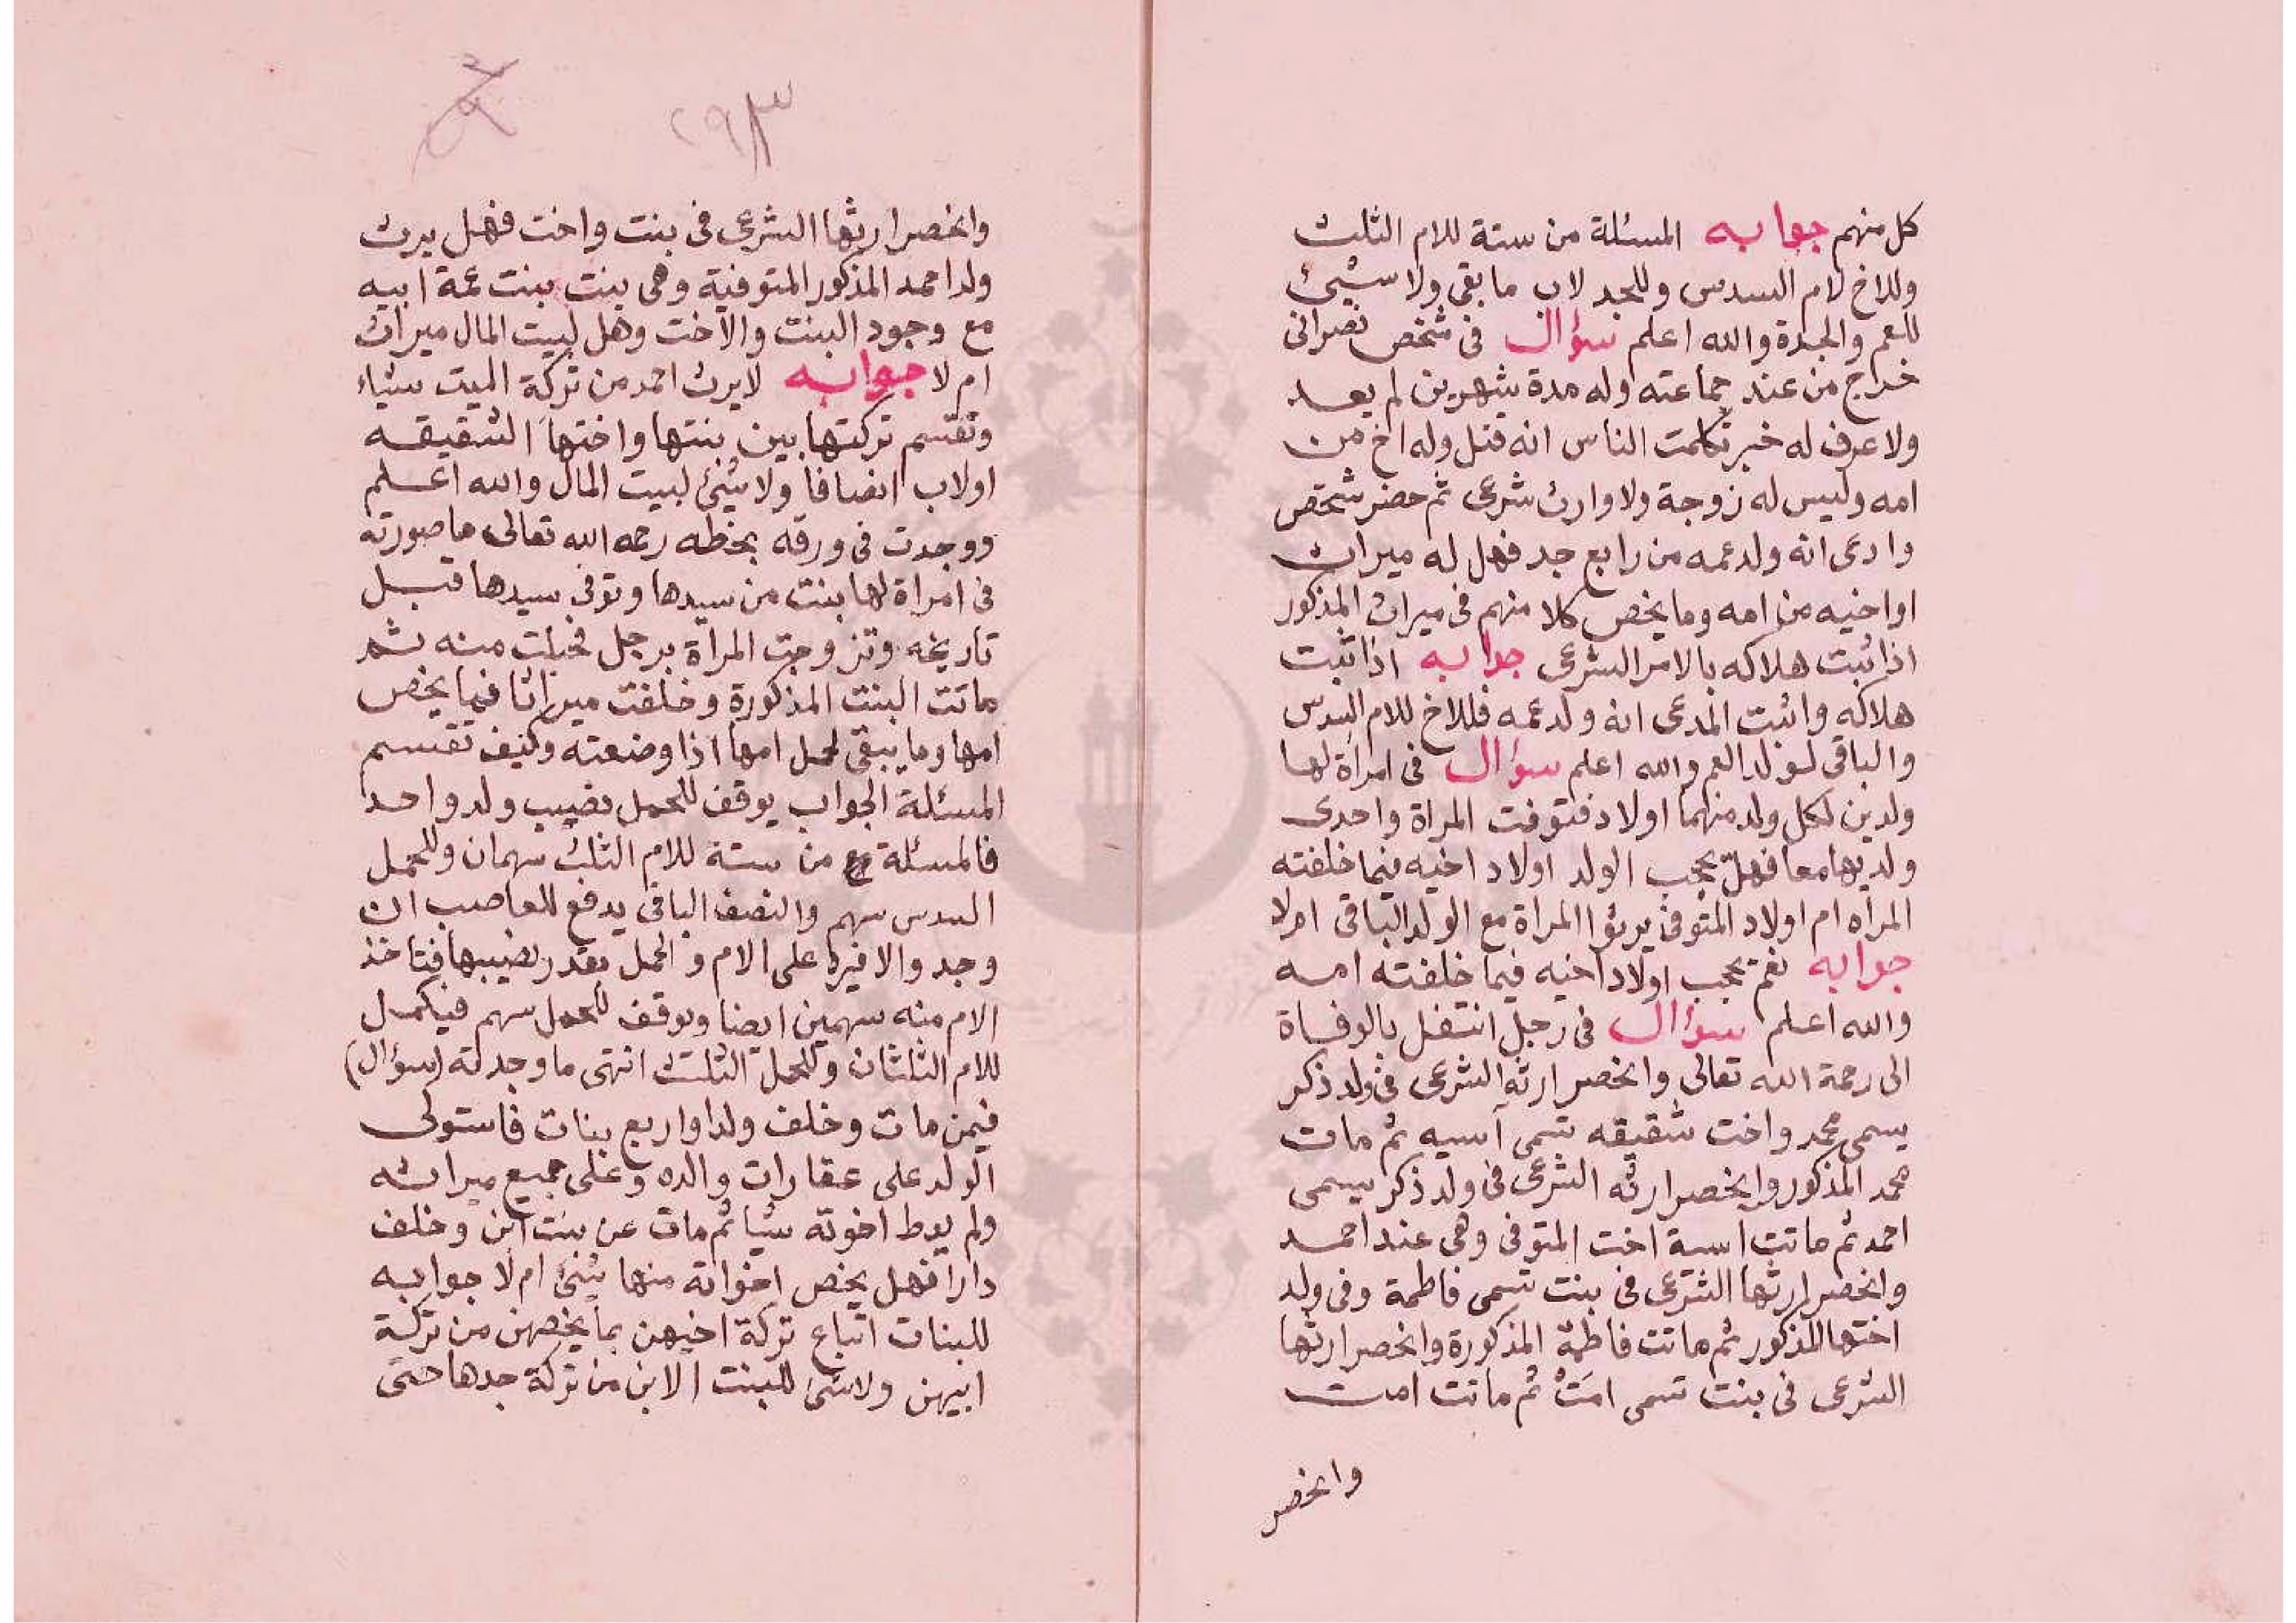 كل منهم جوابه المسئلة من ستة للام الثلث
وللاخ لام السدس وللجد لاب ما بقى ولا شيئ
للعم والجدة والله اعلم سؤال فى شخص نصرانى
خراج من عند جماعته وله مدة شهرين لم يعد
ولا عرف له خبر تكلمت الناس انه قتل وله اخ من
امه وليس له زوجة ولا وارث شرعى ثم حضر شخص
وادعى انه ولد عمه من رابع جد فهل له ميراث
او اخيه من امه وما يخص كلا منهم فى ميراث المذكور
اذا ثبت هلاكه بالامر الشرعى جوابه اذا ثبت
هلاكه واثبت المدعى انه ولد عمه فللاخ للام السدس
والباقى لولد العم والله اعلم سؤال فى امراة لها
ولدين لكل ولد منهما اولاد فتوفت المراة واحدى
ولديها معا فهل يحجب الولد اولاد اخيه فيما خلفته
المراه ام اولاد المتوفى يرثوا المراة مع الولد الباقى ام لا
جوابه نعم يحجب اولاد اخيه فيما خلفته امه
والله اعلم سؤال فى رجل انتقل بالوفاة
الى رحمة الله تعالى وانحصر ارثه الشرعى فى ولد ذكر
يسمى محمد واخت شقيقه تسمى آسيه ثم مات
محمد المذكور وانحصر ارثه الشرعى فى ولد ذكر يسمى
احمد ثم ماتت اسية اخت المتوفى وهى عند احمد
وانحصر ارثها الشرعى فى بنت تسمى فاطمة وفى ولد
اختها المذكور ثم ماتت فاطمة المذكورة وانحصر ارثها
الشرعى فى بنت تسمى امت ثم ماتت امت
وانحصر
٢٩٣
وانحصر ارثها الشرعى فى بنت واخت فهل يرث
ولد احمد المذكور المتوفية وهى بنت بنت عمة ابيه
مع وجود البنت والاخت وهل لبيت المال ميراث
ام لا جوابه لا يرث احمد من تركة الميت شياء
وتقسم تركتها بين بنتها واختها الشقيقه
او لاب انصافا ولا شئ لبيت المال والله اعلم
ووجدت فى ورقه بخطه رحمه الله تعالى ما صورته
فى امراة لها بنت من سيدها وتوفى سيدها قبل
تاريخه وتزوجت المرأة برجل فحبلت منه ثم
ماتت البنت المذكورة وخلفت ميراثا فما يخص
امها وما يبقى لحمل امها اذا وضعته وكيف تقسم
المسئلة الجواب يوقف للحمل نصيب ولد واحد
فالمسئلة من ستة للام الثلث سهمان وللحمل
السدس سهم والنصف الباقى يدفع للعاصب ان
وجد والا فيرد على الام والحمل بقدر نصيبها فتاخذ
الام منه سهمين ايضا ويوقف للحمل سهم فيكمل
للام الثلثان وللحمل الثلث انتهى ما وجدته (سؤال)
فيمن مات وخلف ولدا واربع بنات فاستولى
الولد على عقارات والده وعلى جميع ميراثه
ولم يعط اخوته شيا ثم مات عن بنت ابن وخلف
دارا فهل يخص اخواته منها شئ ام لا جوابه
للبنات اتباع تركة اخيهن بما يخصهن من تركة
ابيهن ولا شئ للبنت الابن من تركة جدها حتى